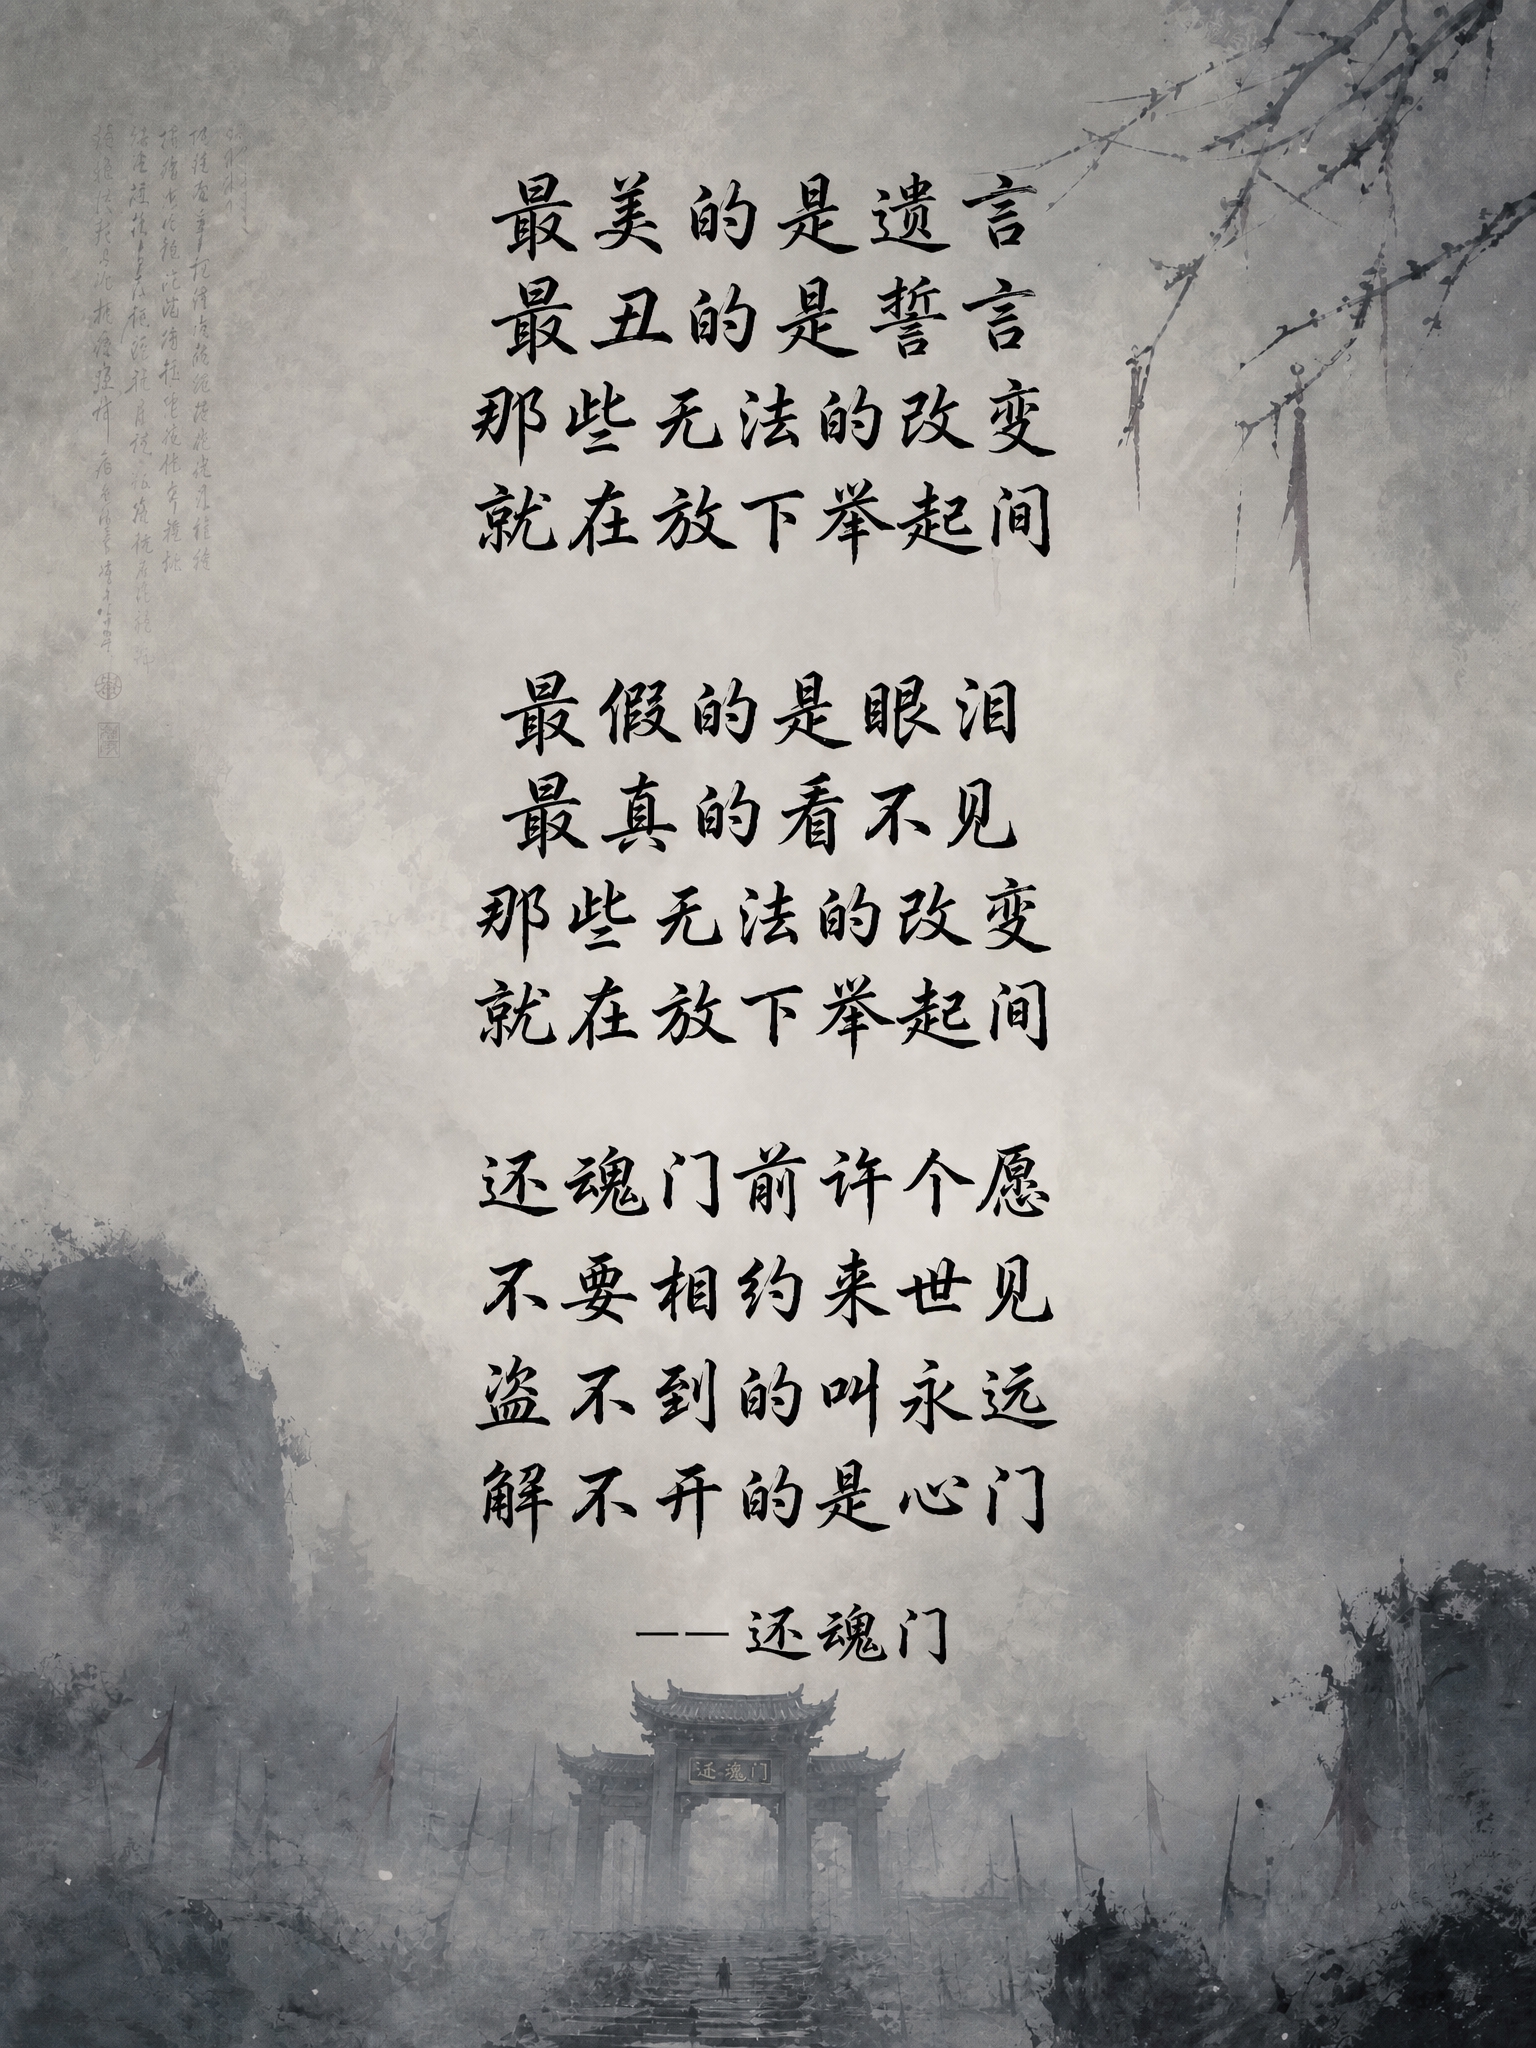 最美的是遗言
最丑的是誓言
那些无法的改变
就在放下举起间
最假的是眼泪
最真的看不见
那些无法的改变
就在放下举起间
还魂门前许个愿
不要相约来世见
盗不到的叫永远
解不开的是心门
——还魂门
还魂门